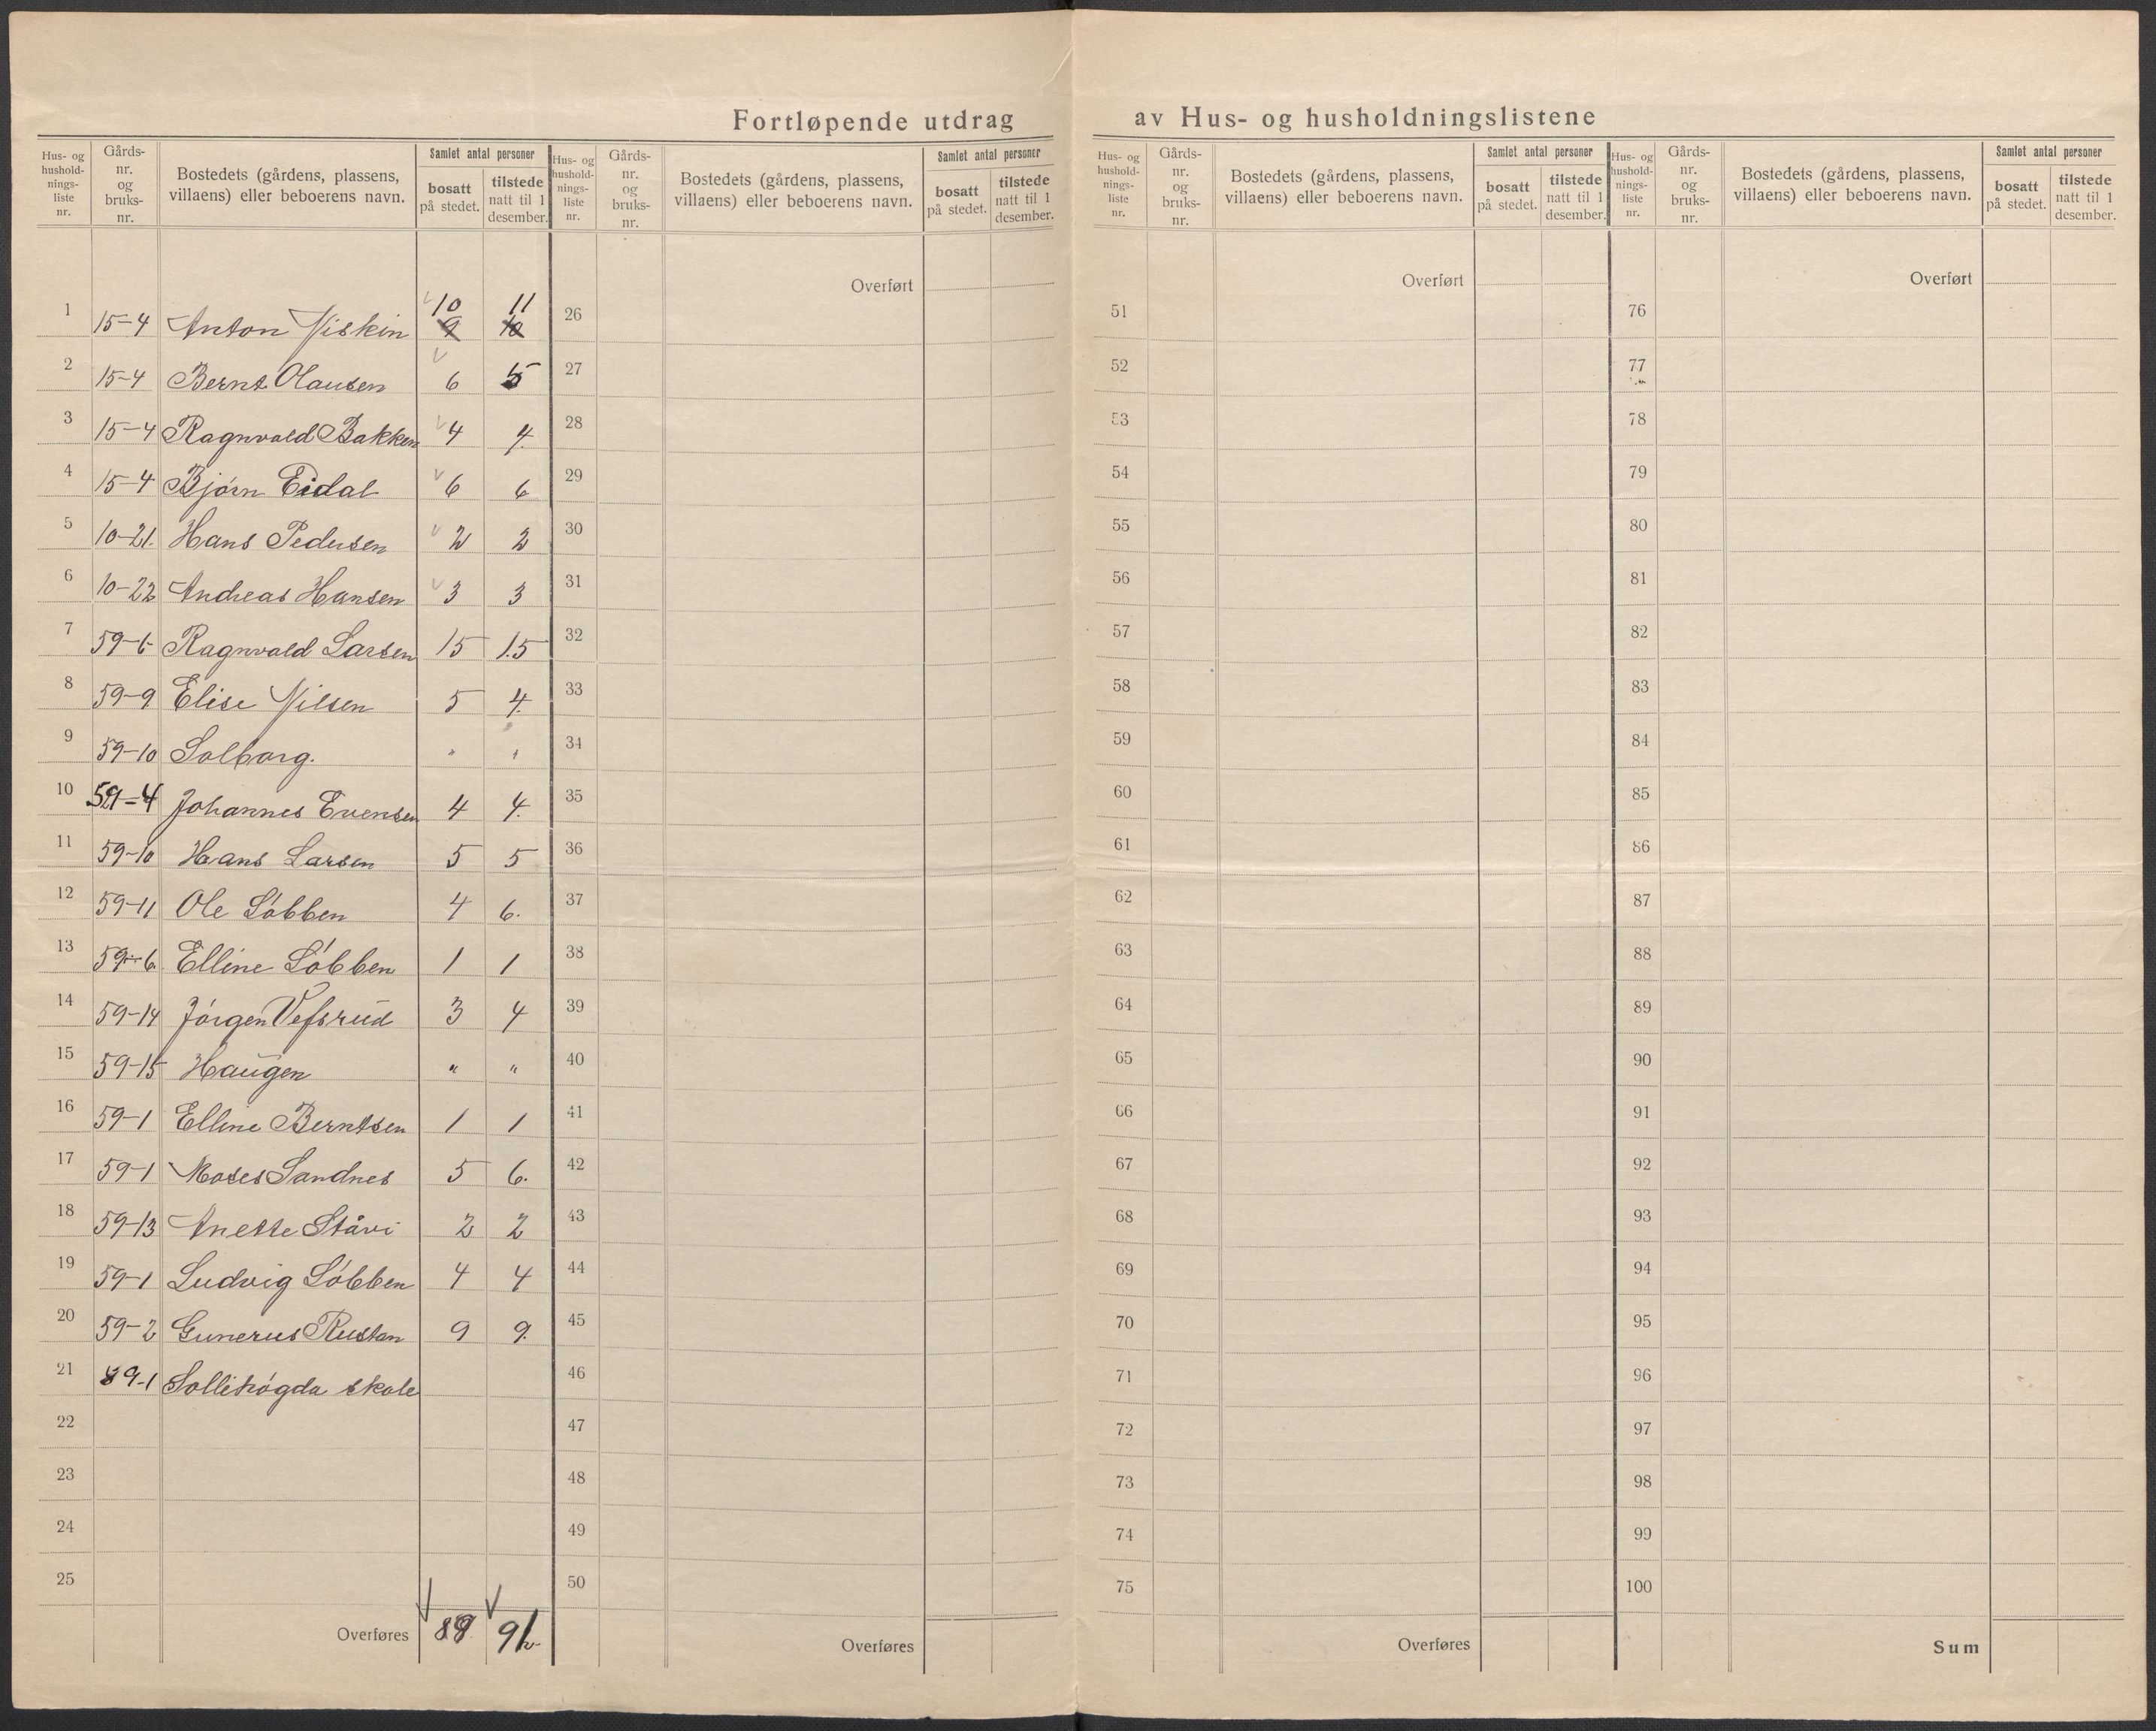 Fortløpende utdrag av Hus- og husholdningslistene
Hus- og hushold-nings-liste nr. Gårds-nr. og bruks-nr. Bostedets (gårdens, plassens, villaens) eller beboerens navn. Samlet antal personer bosatt på stedet. tilstede natt til 1 desember.
1 15-4 Anton Niskin 10 11
9 10
2 15-4 Bernt Olausen 6 5
3 15-4 Ragnvald Bakken 4 4.
4 15-4 Bjørn Eidal 6 6
5 10-21. Hans Pedersen 2 2
6 10-22 Andreas Hansen 3 3
7 59-6 Ragnvald Larsen 15 15
8 59-9 Elise Nilsen 5 4.
9 59-10 Solborg. " "
10 59-4 Johannes Evensen 4 4.
11 59-10 Hans Larsen 5 5
12 59-11 Ole Løbben 4 6.
13 59-6 Elline Løbben 1 1
14 59-14 Jørgen Vefsrud 3 4
15 59-15 Haugen " "
16 59-1 Elline Berntsen 1 1
17 59-1 Moses Sandnes 5 6.
18 59-13 Anette Ståvi 2 2
19 59-1 Ludvig Løbben 4 4
20 59-2 Gunerus Rustan 9 9.
21 89-1 Sollihøgda skole
22
23
24
25
Overføres 89 92
Hus- og hushold-nings-liste nr. Gårds-nr. og bruks-nr. Bostedets (gårdens, plassens, villaens) eller beboerens navn. Samlet antal personer bosatt på stedet. tilstede natt til 1 desember.
Overført
26
27
28
29
30
31
32
33
34
35
36
37
38
39
40
41
42
43
44
45
46
47
48
49
50
Overføres
Hus- og hushold-nings-liste nr. Gårds-nr. og bruks-nr. Bostedets (gårdens, plassens, villaens) eller beboerens navn. Samlet antal personer bosatt på stedet. tilstede natt til 1 desember.
Overført
51
52
53
54
55
56
57
58
59
60
61
62
63
64
65
66
67
68
69
70
71
72
73
74
75
Overføres
Hus- og hushold-nings-liste nr. Gårds-nr. og bruks-nr. Bostedets (gårdens, plassens, villaens) eller beboerens navn. Samlet antal personer bosatt på stedet. tilstede natt til 1 desember.
Overført
76
77
78
79
80
81
82
83
84
85
86
87
88
89
90
91
92
93
94
95
96
97
98
99
100
Sum